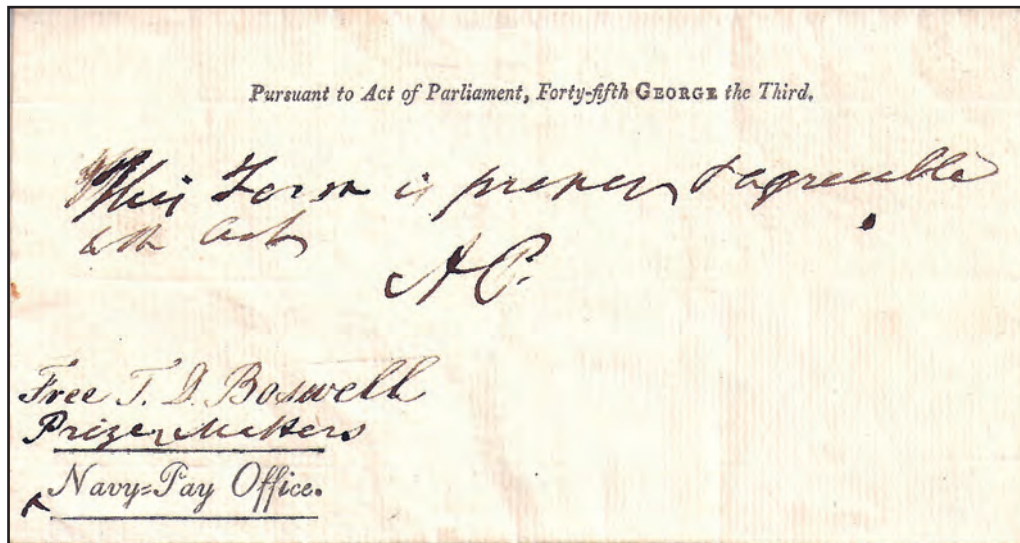 Pursuant to Act of Parliament, Forty-fifth GEORGE the Third.
This Form is proper & agreeable
with Act
A P.
Free T. D. Boswell
Prize Matters
Navy=Pay Office.